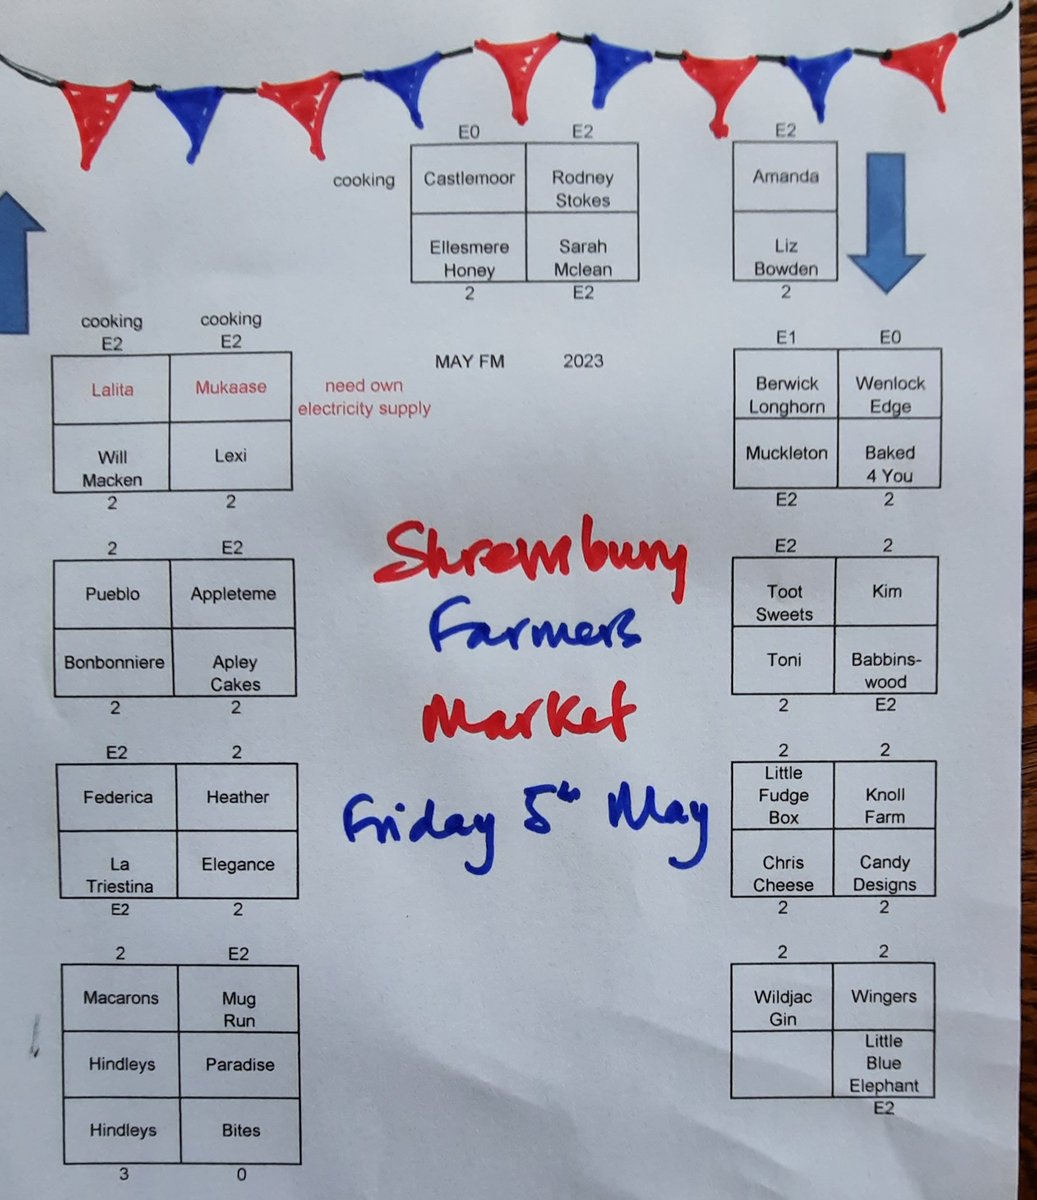 E0 E2 E2
cooking Castlemoor Rodney Stokes Amanda
Ellesmere Honey Sarah Mclean Liz Bowden
2 E2 2
cooking cooking
E2 E2
Lalita Mukaase
need own
electricity supply
Will Macken Lexi
2 2
MAY FM 2023
E1 E0
Berwick Longhorn Wenlock Edge
Muckleton Baked 4 You
E2 2
Shrewsbury
Farmers
Market
Friday 5th May
2 E2
Pueblo Appleteme
Bonbonniere Apley Cakes
2 2
E2 2
Toot Sweets Kim
Toni Babbins-wood
2 E2
E2 2
Federica Heather
La Triestina Elegance
E2 2
2 2
Little Fudge Box Knoll Farm
Chris Cheese Candy Designs
2 2
2 E2
Macarons Mug Run
Hindleys Paradise
Hindleys Bites
3 0
2 2
Wildjac Gin Wingers
Little Blue Elephant
E2